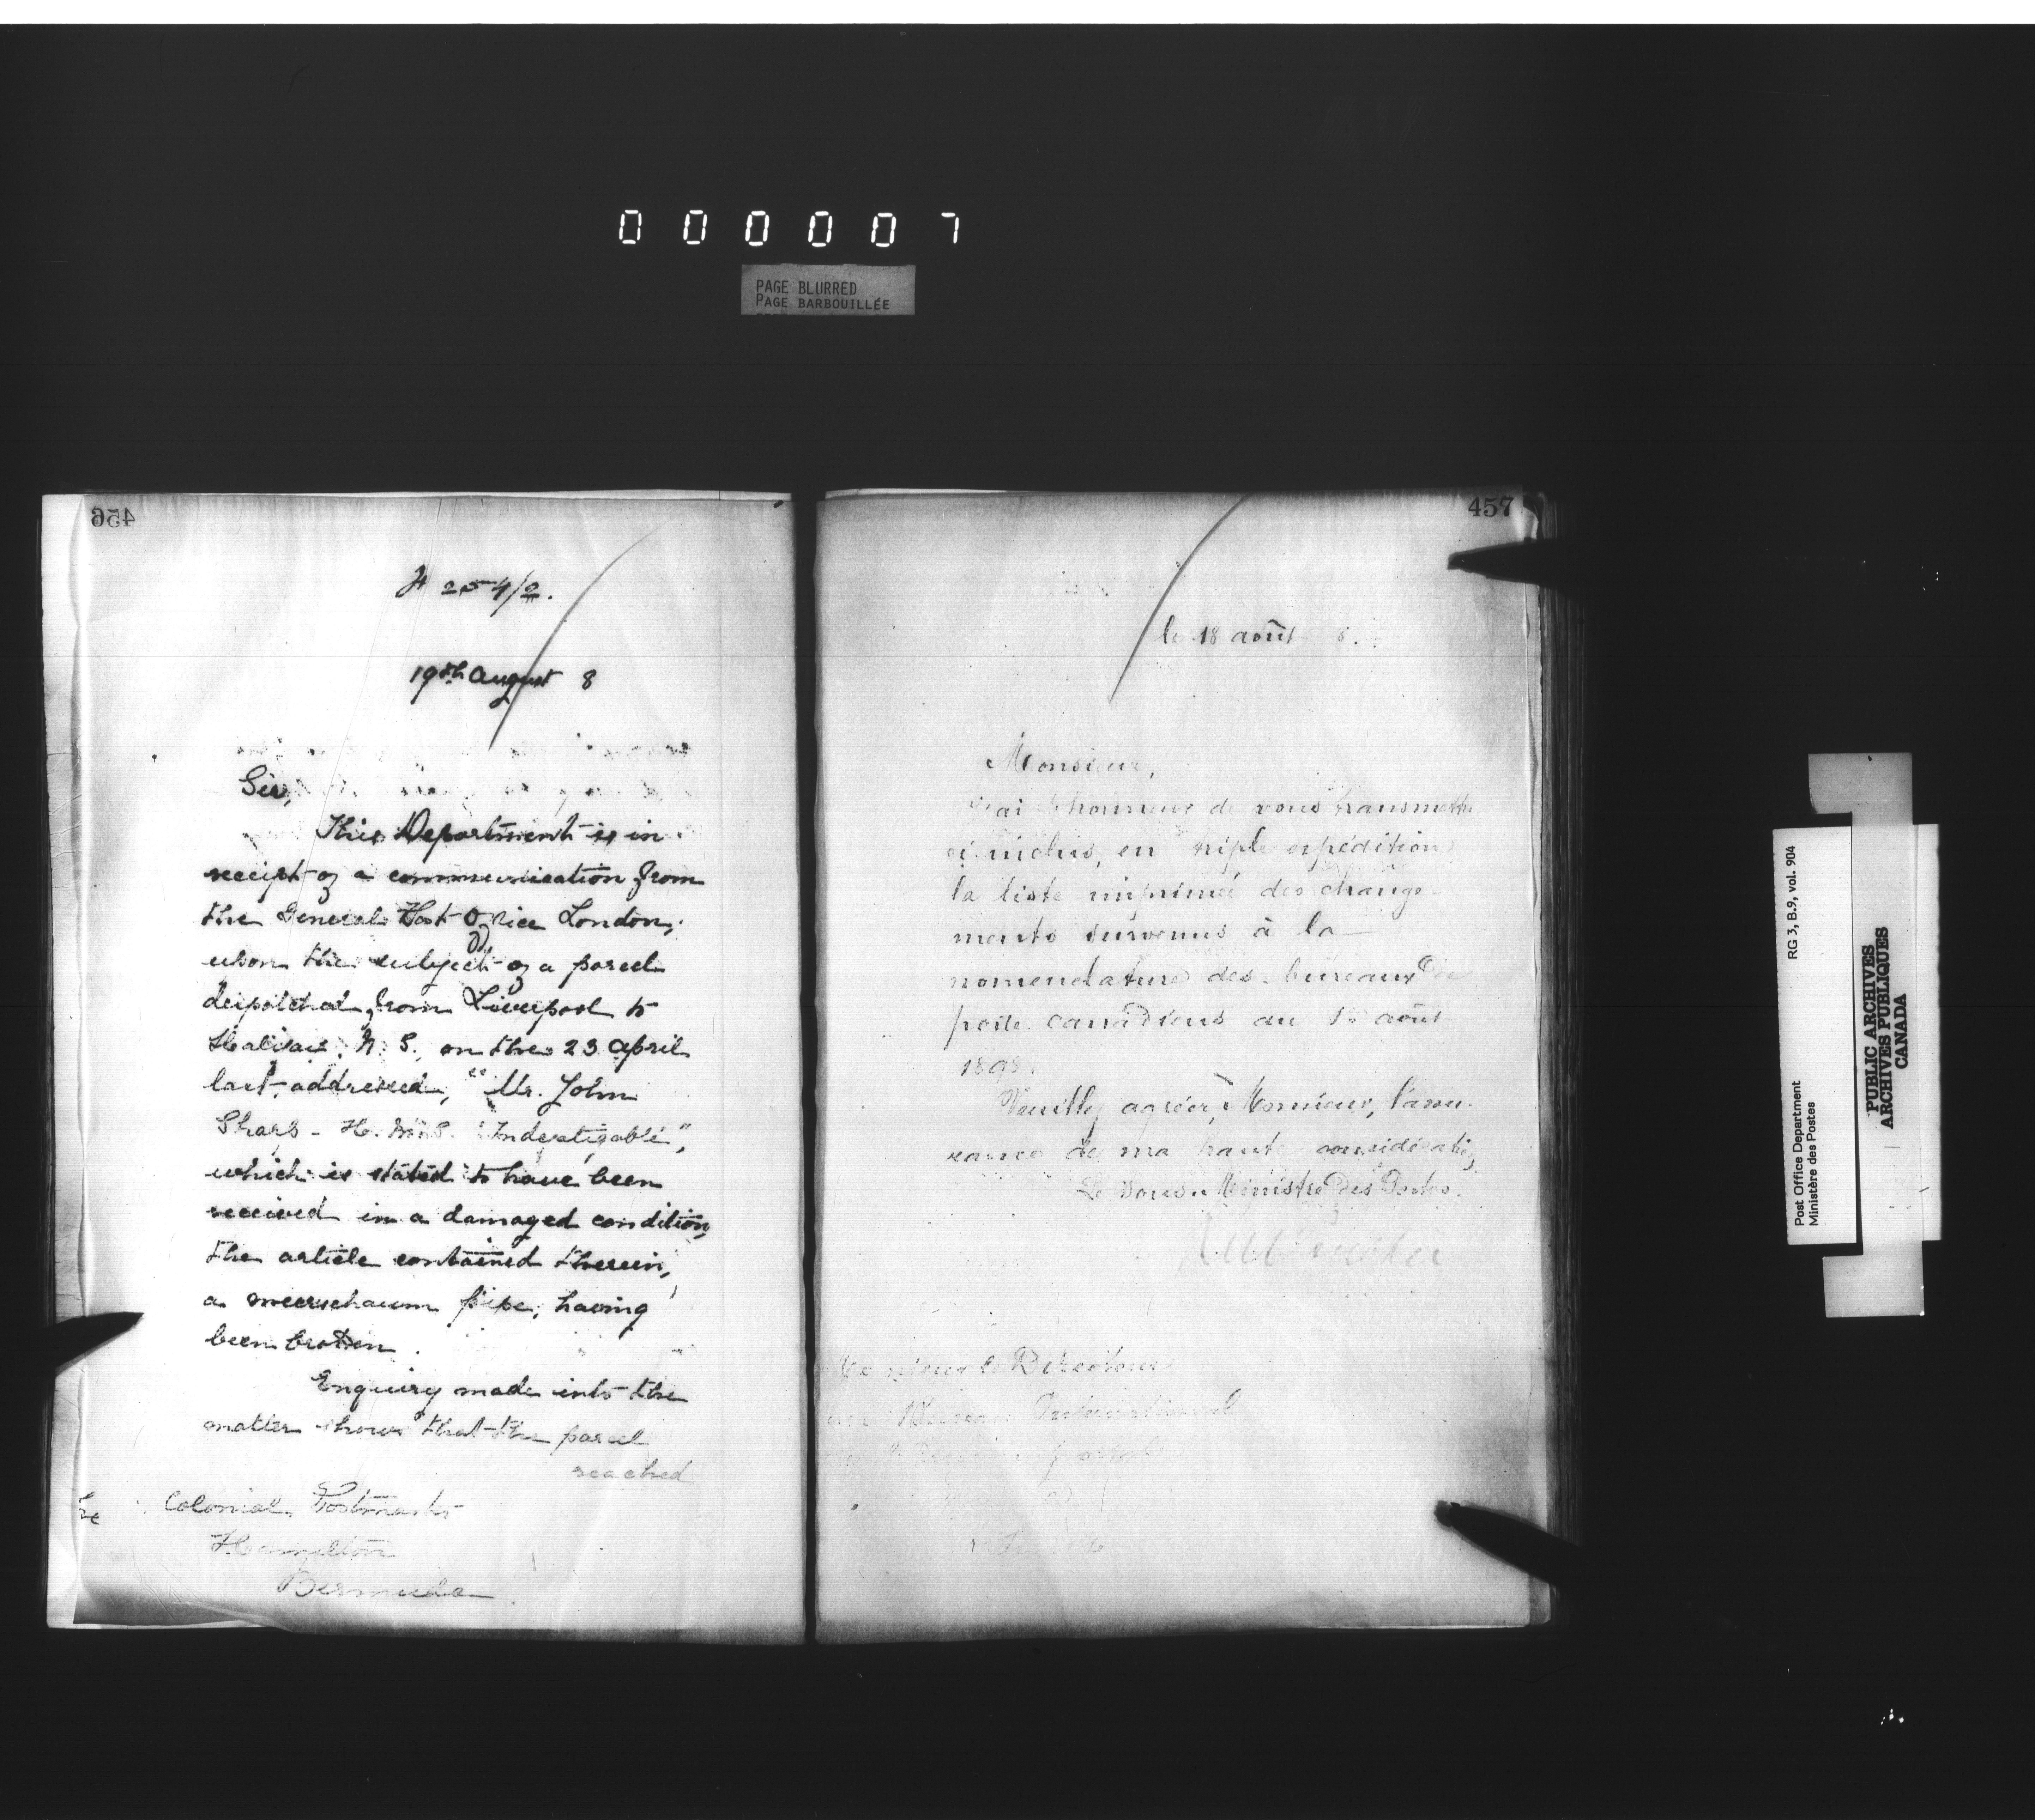 0 0 0 0 0 7
PAGE BLURRED
PAGE BARBOUILLÉE
456
254/2.
19th August 8
Sir,
This Department is in
receipt of a communication from
the General Post Office London,
upon the subject of a parcel
despatched from Liverpool to
Halifax, N. S., on the 23 April
last, addressed, "Mr. John
Sharp - H.M.S. "Indefatigable",
which is stated to have been
received in a damaged condition,
the article contained therein,
a meerschaum pipe, having
been broken.
Enquiry made into the
matter shows that the parcel
reached
The Colonial Postmaster
Hamilton
Bermuda
457
le 18 août 8.
Monsieur,
J'ai l'honneur de vous transmettre
ci-inclus, en triple expédition
la liste imprimée des change-
ments survenus à la
nomenclature des bureaux de
poste canadiens au août
1898.
Veuillez agréer, Monsieur, l'assu-
rance de ma haute considération,
Le Sous-Ministre des Postes.
Monsieur le Directeur
du Bureau International
de postale
Post Office Department
Ministère des Postes
RG 3, B.9, vol. 904
PUBLIC ARCHIVES
ARCHIVES PUBLIQUES
CANADA